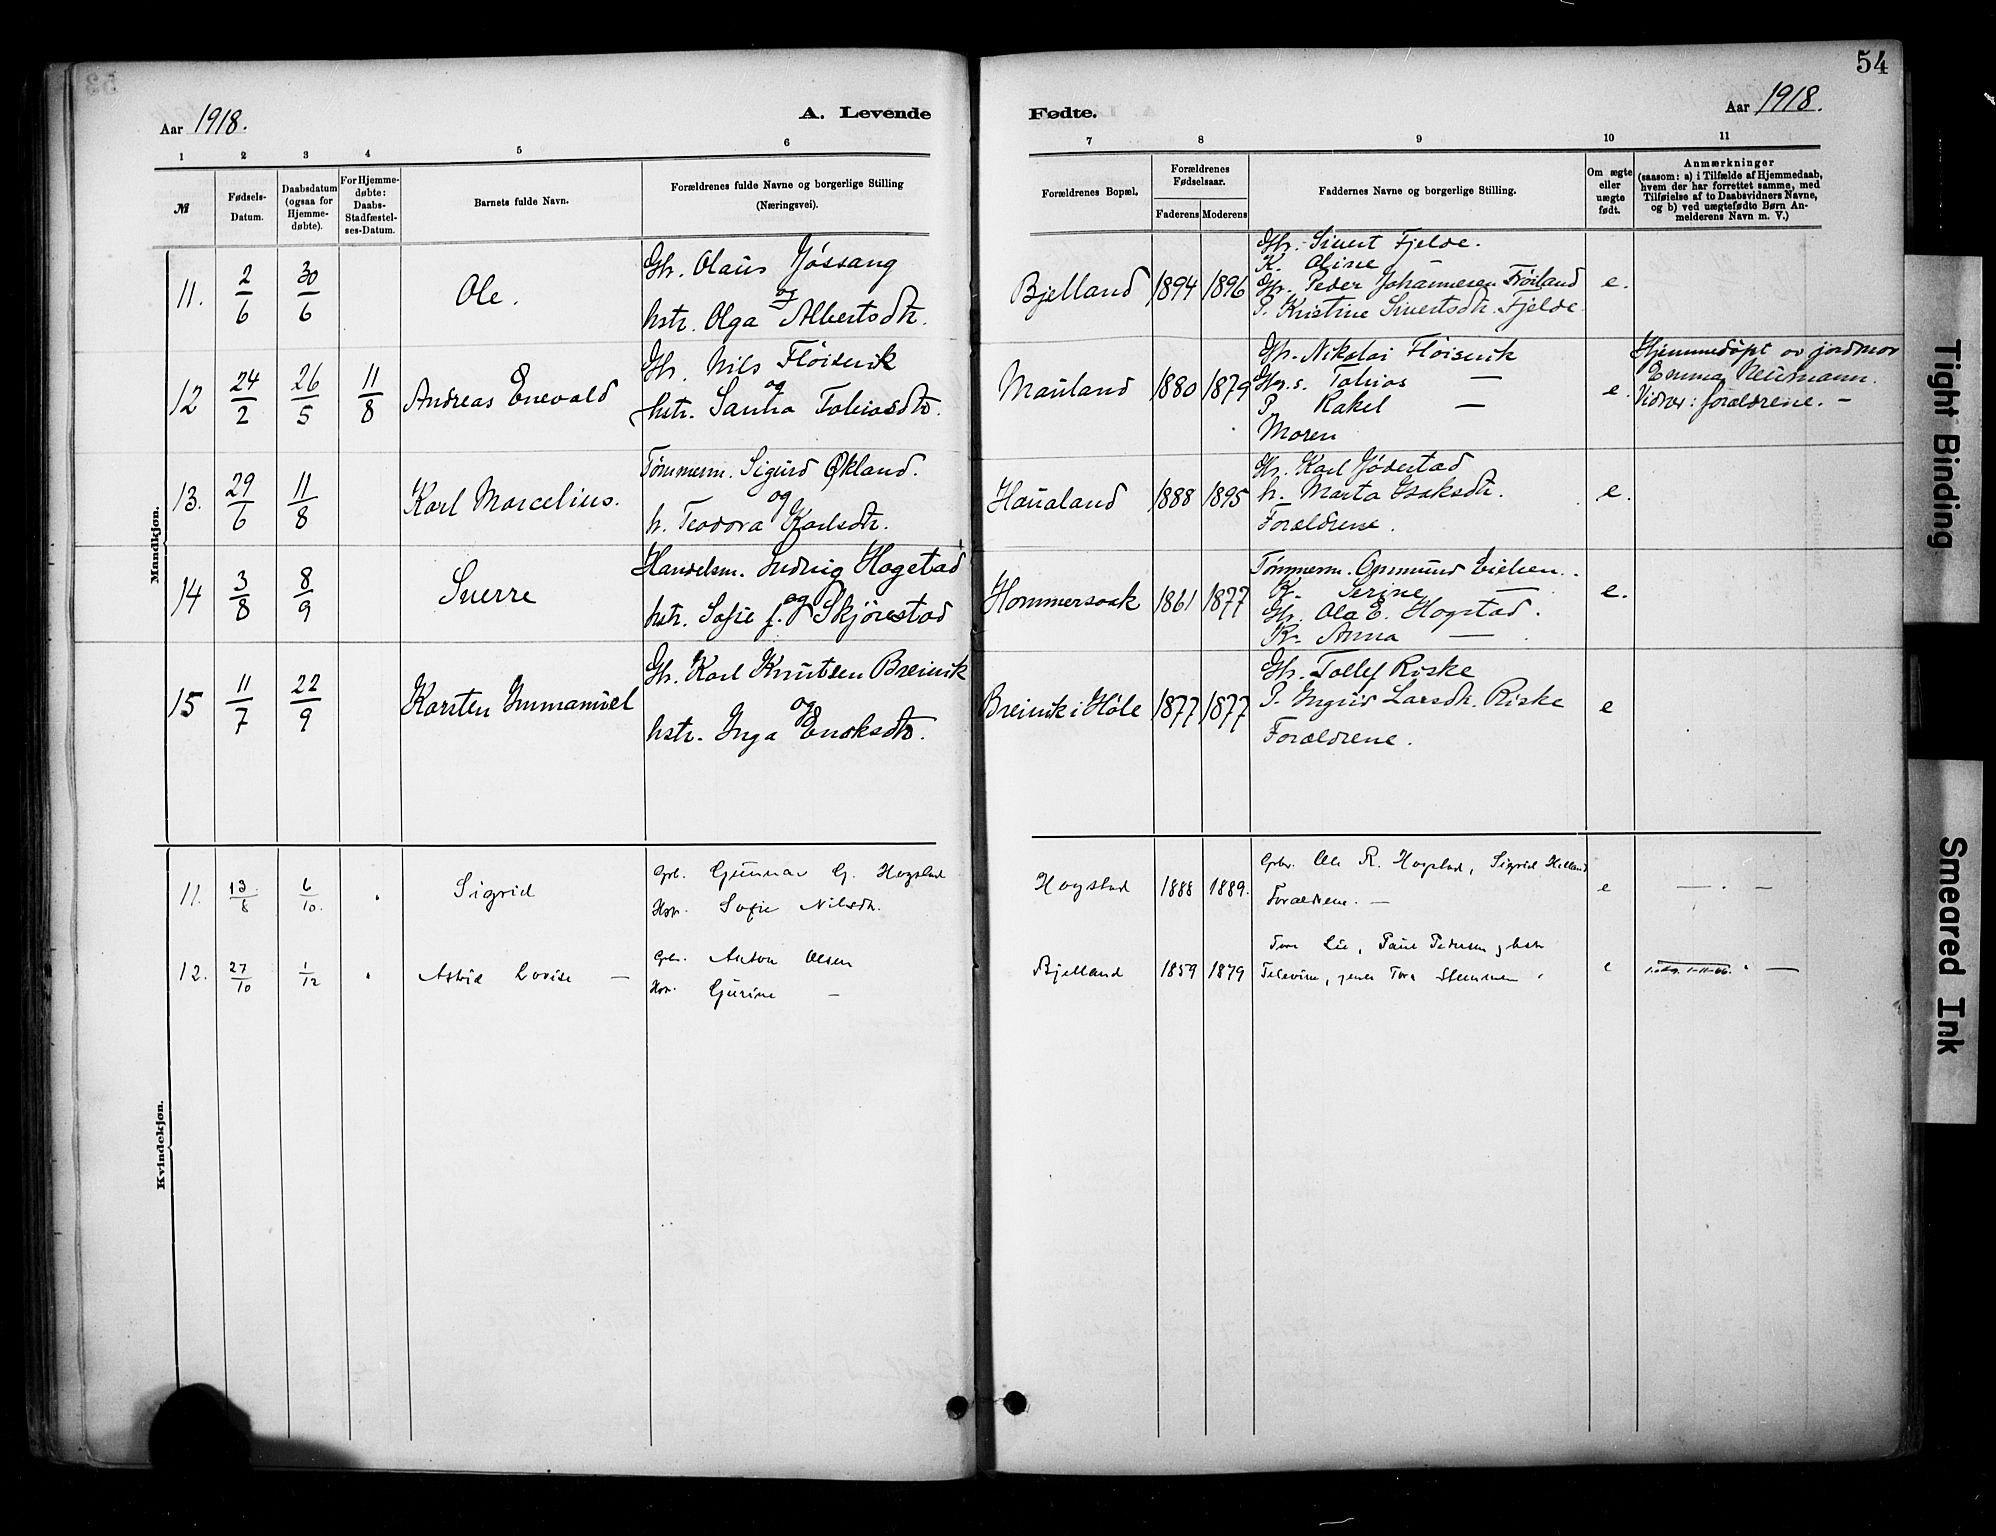 54
Aar 1918.
A. Levende
Fødte.
Aar 1918.
1 2 3 4 5 6
7 8 9 10 11
№
Fødsels-Datum.
Daabsdatum (ogsaa for Hjemme-døbte).
For Hjemme-døbte: Daabs-Stadfæstel-ses-Datum.
Barnets fulde Navn.
Forældrenes fulde Navne og borgerlige Stilling
(Næringsvei).
Forældrenes Bopæl.
Forældrenes Fødselsaar.
Faderens Moderens
Faddernes Navne og borgerlige Stilling.
Om ægte eller uægte født.
Anmærkninger
(saasom: a) i Tilfælde af Hjemmedaab,
hvem der har forrettet samme, med
Tilføielse af to Daabsvidners Navne,
og b) ved uægtefødte Børn An-
melderens Navn m. V.)
Mandkjøn.
11. 2/6 30/6 Ole.
Gbr. Olaus Jössang
og
hstr. Olga Albertsdtr.
Bjelland 1894 1896
Gbr. Sivert Fjelde.
K. Oline
Gbr. Peder Johannesen Fröiland
P. Kristine Sivertsdtr. Fjelde
e.
12 24/2 26/5 11/8 Andreas Enevald
Gbr. Nils Flöisvik
og
hstr. Sanna Tobiasdtr.
Mauland 1880 1879
Gbr. Nikolai Flöisvik
Gbr.s. Tobias —
P. Rakel —
Moren
e.
Hjemmedöpt av jordmor
Emma Neumann.
Vidner: forældrene. –
13. 29/6 11/8 Karl Marcelius.
Tömmerm. Sigurd Økland.
og
h. Teodora Karlsdtr.
Haualand 1888 1895
Gbr. Karl Jödestad
h. Marta Isaksdtr.
Forældrene.
e.
14 3/8 8/9 Sverre
Handelsm. Ludvig Hogstad
og
hstr. Sofie f. Skjörestad
Hommersaak 1861 1877
Tömmerm. Ommund Eielsen.
K. Serine —
Gbr. Ola E. Hogstad.
K. Anna —
e.
15 11/7 22/9 Karsten Immanuel
Gbr. Karl Knutsen Breivik
og
hstr. Inga Enoksdtr.
Breivik i Höle 1877 1877
Gbr. Tollef Riske
P. Ingrid Larsdtr. Riske
Forældrene.
e
Kvindekjøn.
11. 13/8 6/10. Sigrid
Gbr. Gunnar G. Hogstad
Hstr. Sofie Nilsdtr.
Hogstad 1888 1889.
Gbr. Ole R. Hogstad, Sigrid Helland
Forældrene. —
e
12. 27/10 1/12 Astrid Lovise —
Gbr. Anton Olsen
Hstr. Gurine —
Bjelland 1859 1879
Tore Lie, Paul Pedersen,
e
Tight Binding
Smeared Ink